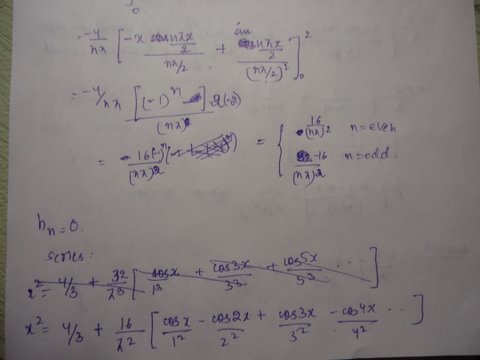 0
= -4/nπ [ -x cos nπx/2 / nπ/2 + sin nπx/2 / (nπ/2)² ]₀²
= -4/nπ [ (-1)ⁿ ] 2(-2) / (nπ)
= 16(-1)ⁿ / (nπ)² = { 16/(nπ)² n=even
-16/(nπ)² n=odd.
bₙ=0.
series:
x² = 4/3 + 32/π³ [ cosx/1³ + cos3x/3³ + cos5x/5³ ... ]
x² = 4/3 + 16/π² [ cosx/1² - cos2x/2² + cos3x/3² - cos4x/4² .. ]